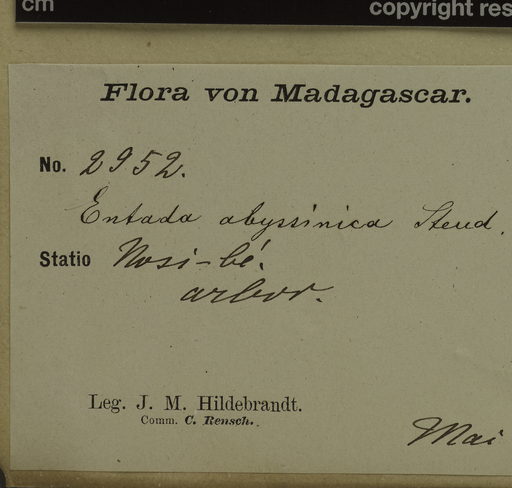 cm
copyright res
Flora von Madagascar.
No. 2952.
Entada abyssinica Steud.
Statio Nosi-bé.
arbor.
Leg. J. M. Hildebrandt.
Comm. C. Rensch.
Mai